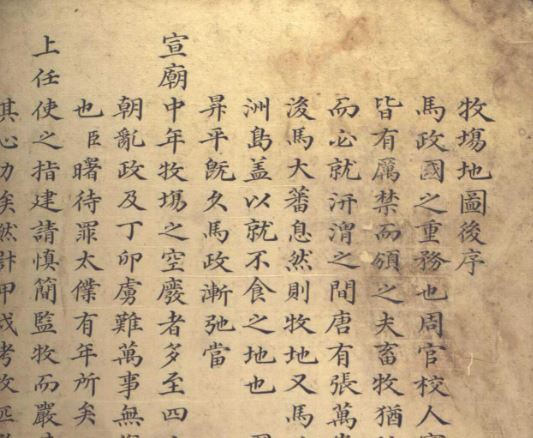 牧塲地圖後序
馬政國之重務也周官校人
皆有厲禁而頒之夫畜牧猶
而必就汧渭之間唐有張萬
後馬大蕃息然則牧地又馬
洲島盖以就不食之地也
昇平旣久馬政漸弛當
宣廟中年牧塲之空廢者多至四
朝亂政及丁卯虜難萬事無
也臣曙待罪太僕有年所矣
上任使之指建請慎簡監牧而嚴
其心力矣然計甲戌考牧匹